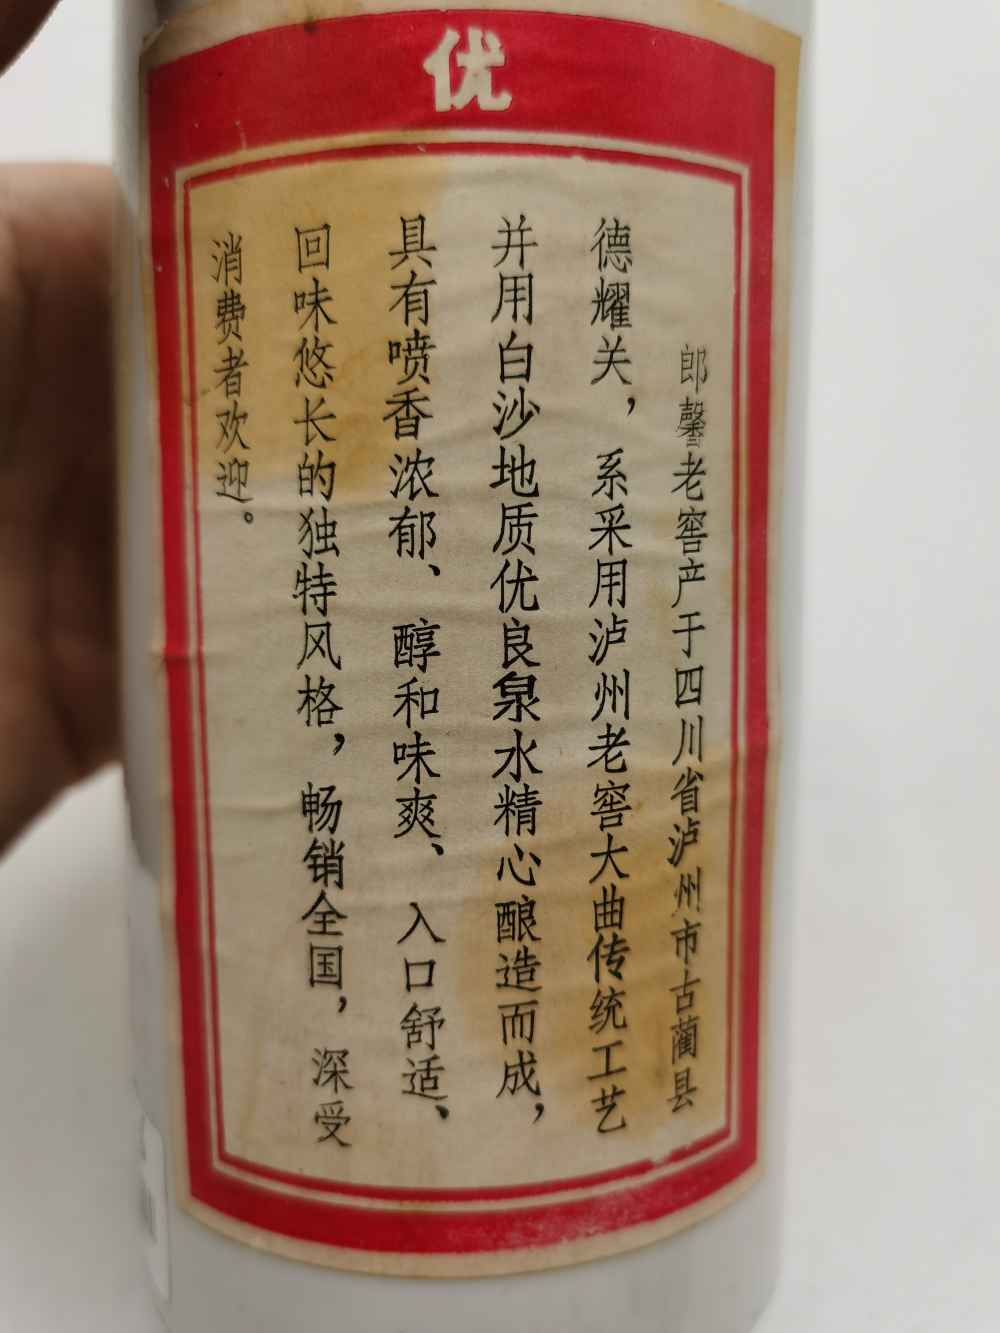 优
郎馨老窖产于四川省泸州市古蔺县
德耀关，系采用泸州老窖大曲传统工艺
并用白沙地质优良泉水精心酿造而成，
具有喷香浓郁、醇和味爽、入口舒适、
回味悠长的独特风格，畅销全国，深受
消费者欢迎。